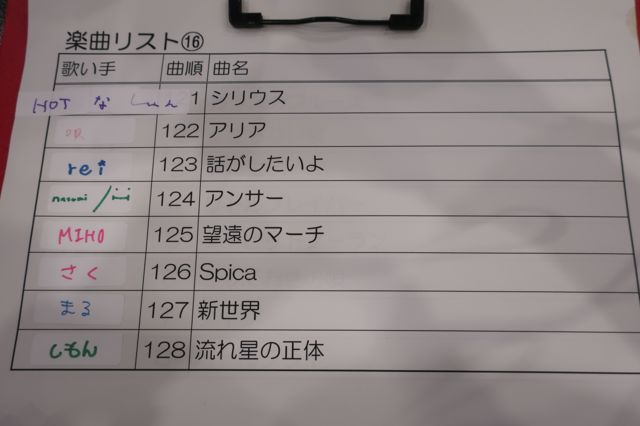 楽曲リスト⑯
歌い手 曲順 曲名
HOTな 1 シリウス
唄 122 アリア
rei 123 話がしたいよ
124 アンサー
MIHO 125 望遠のマーチ
さく 126 Spica
まる 127 新世界
しもん 128 流れ星の正体